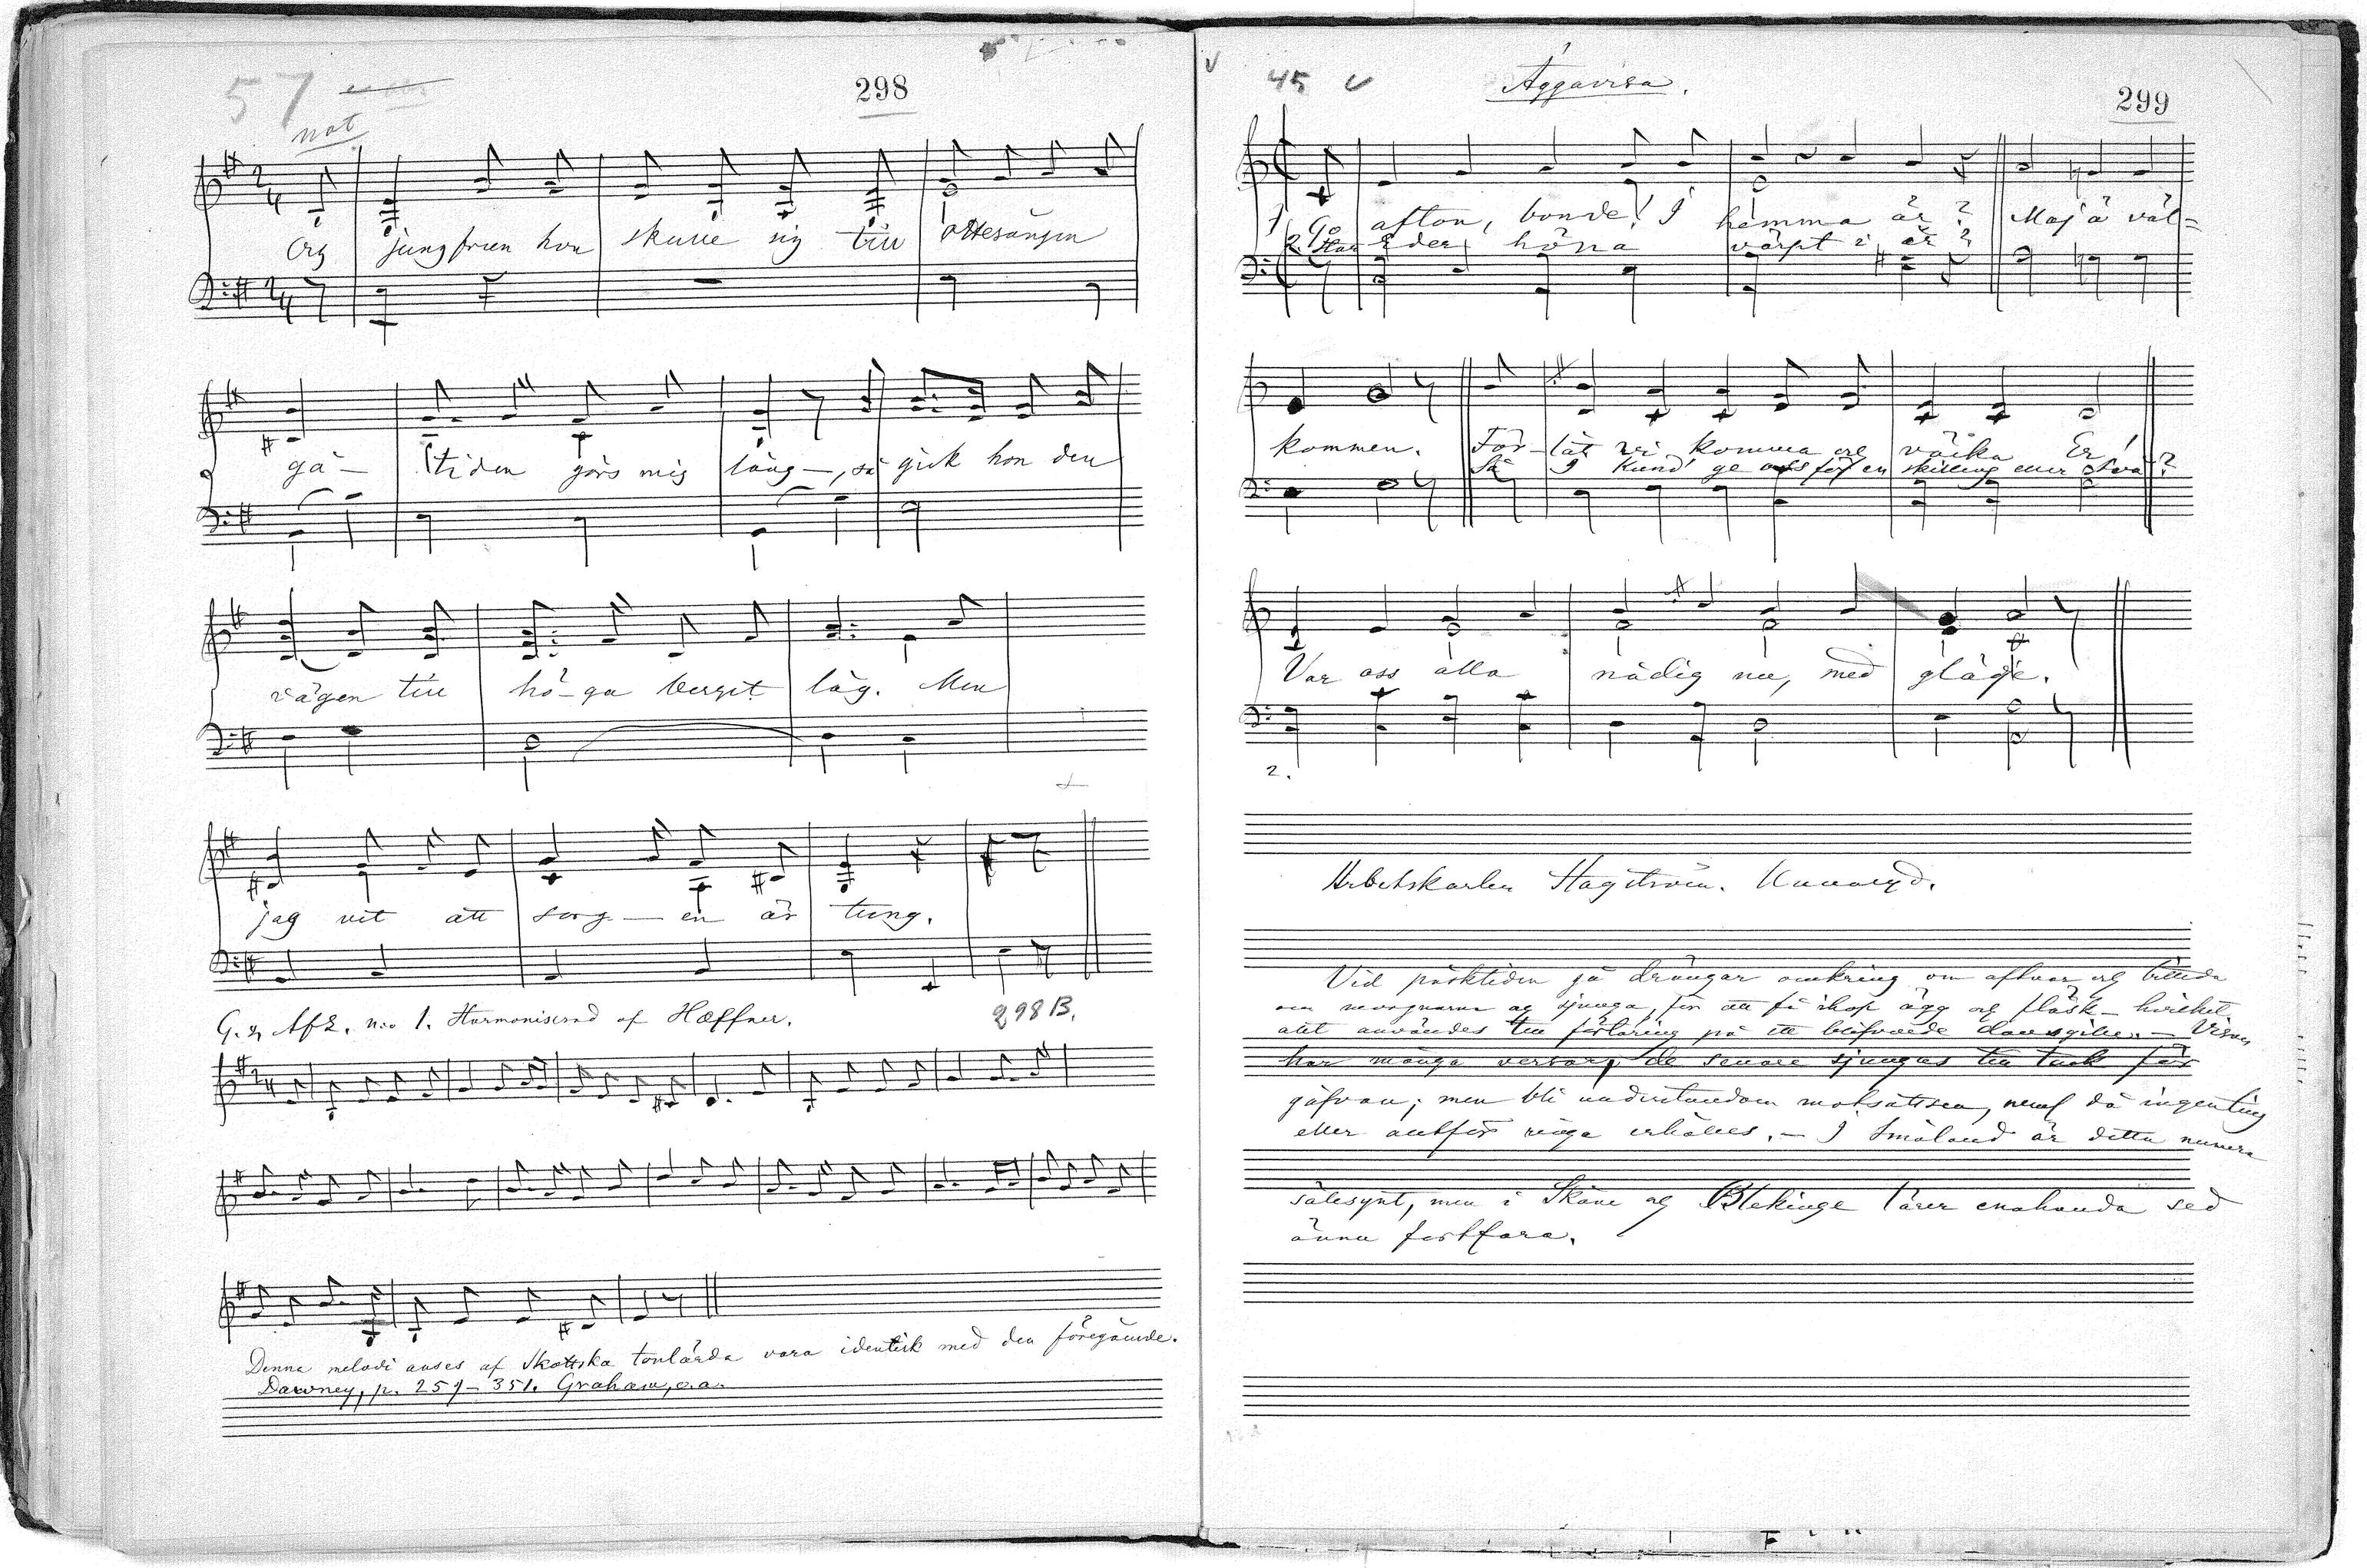 57
298
not
Og jungfrun hon skulle sig till ottesången
gå — tiden görs mig lång —, så gick hon den
vägen till hö-ga berget låg. Men
jag vet att sorg — en är tung.
G. & Afz. n:o 1. Harmoniserad af Hæffner.
298 B.
Denna melodi anses af Skottska tonlärda vara identisk med den föregående.
Dauney, p. 257 - 351. Graham, o.a.
45
Äggavisa.
299
1. Go afton, bonde! I hemma är? Maj ä väl=
2. Har Eder höna värpt i år?
kommen. För-låt vi komma og väcka Er!
Så I kund' ge oss för en skilling eller två?
Var oss alla nådig nu, med gläje.
2.
Arbetskarlen Hagström. Unnaryd.
Vid påsktiden gå drängar omkring om aftnar og bittida
om morgnarna og sjunga, för att få ihop ägg og fläsk — hvilket
allt användes till förtäring på ett blifvande dansgille. — Visan
har många verser, de senare sjungas till tack för
gåfvan; men bli understundom motsattsen, när då ingenting
eller alltför ringa erhålles. — I Småland är detta numera
sällsynt, men i Skåne og Blekinge lärer enahanda sed
ännu fortfara.